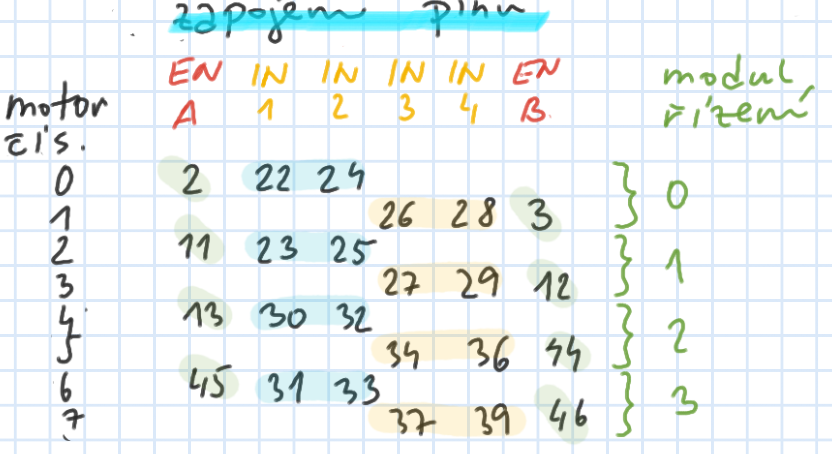 zapojení pinu
EN IN IN IN IN EN modul
motor A 1 2 3 4 B řízení
čís.
0 2 22 24 } 0
1 26 28 3
2 11 23 25 } 1
3 27 29 12
4 13 30 32 } 2
5 34 36 44
6 45 31 33 } 3
7 37 39 46